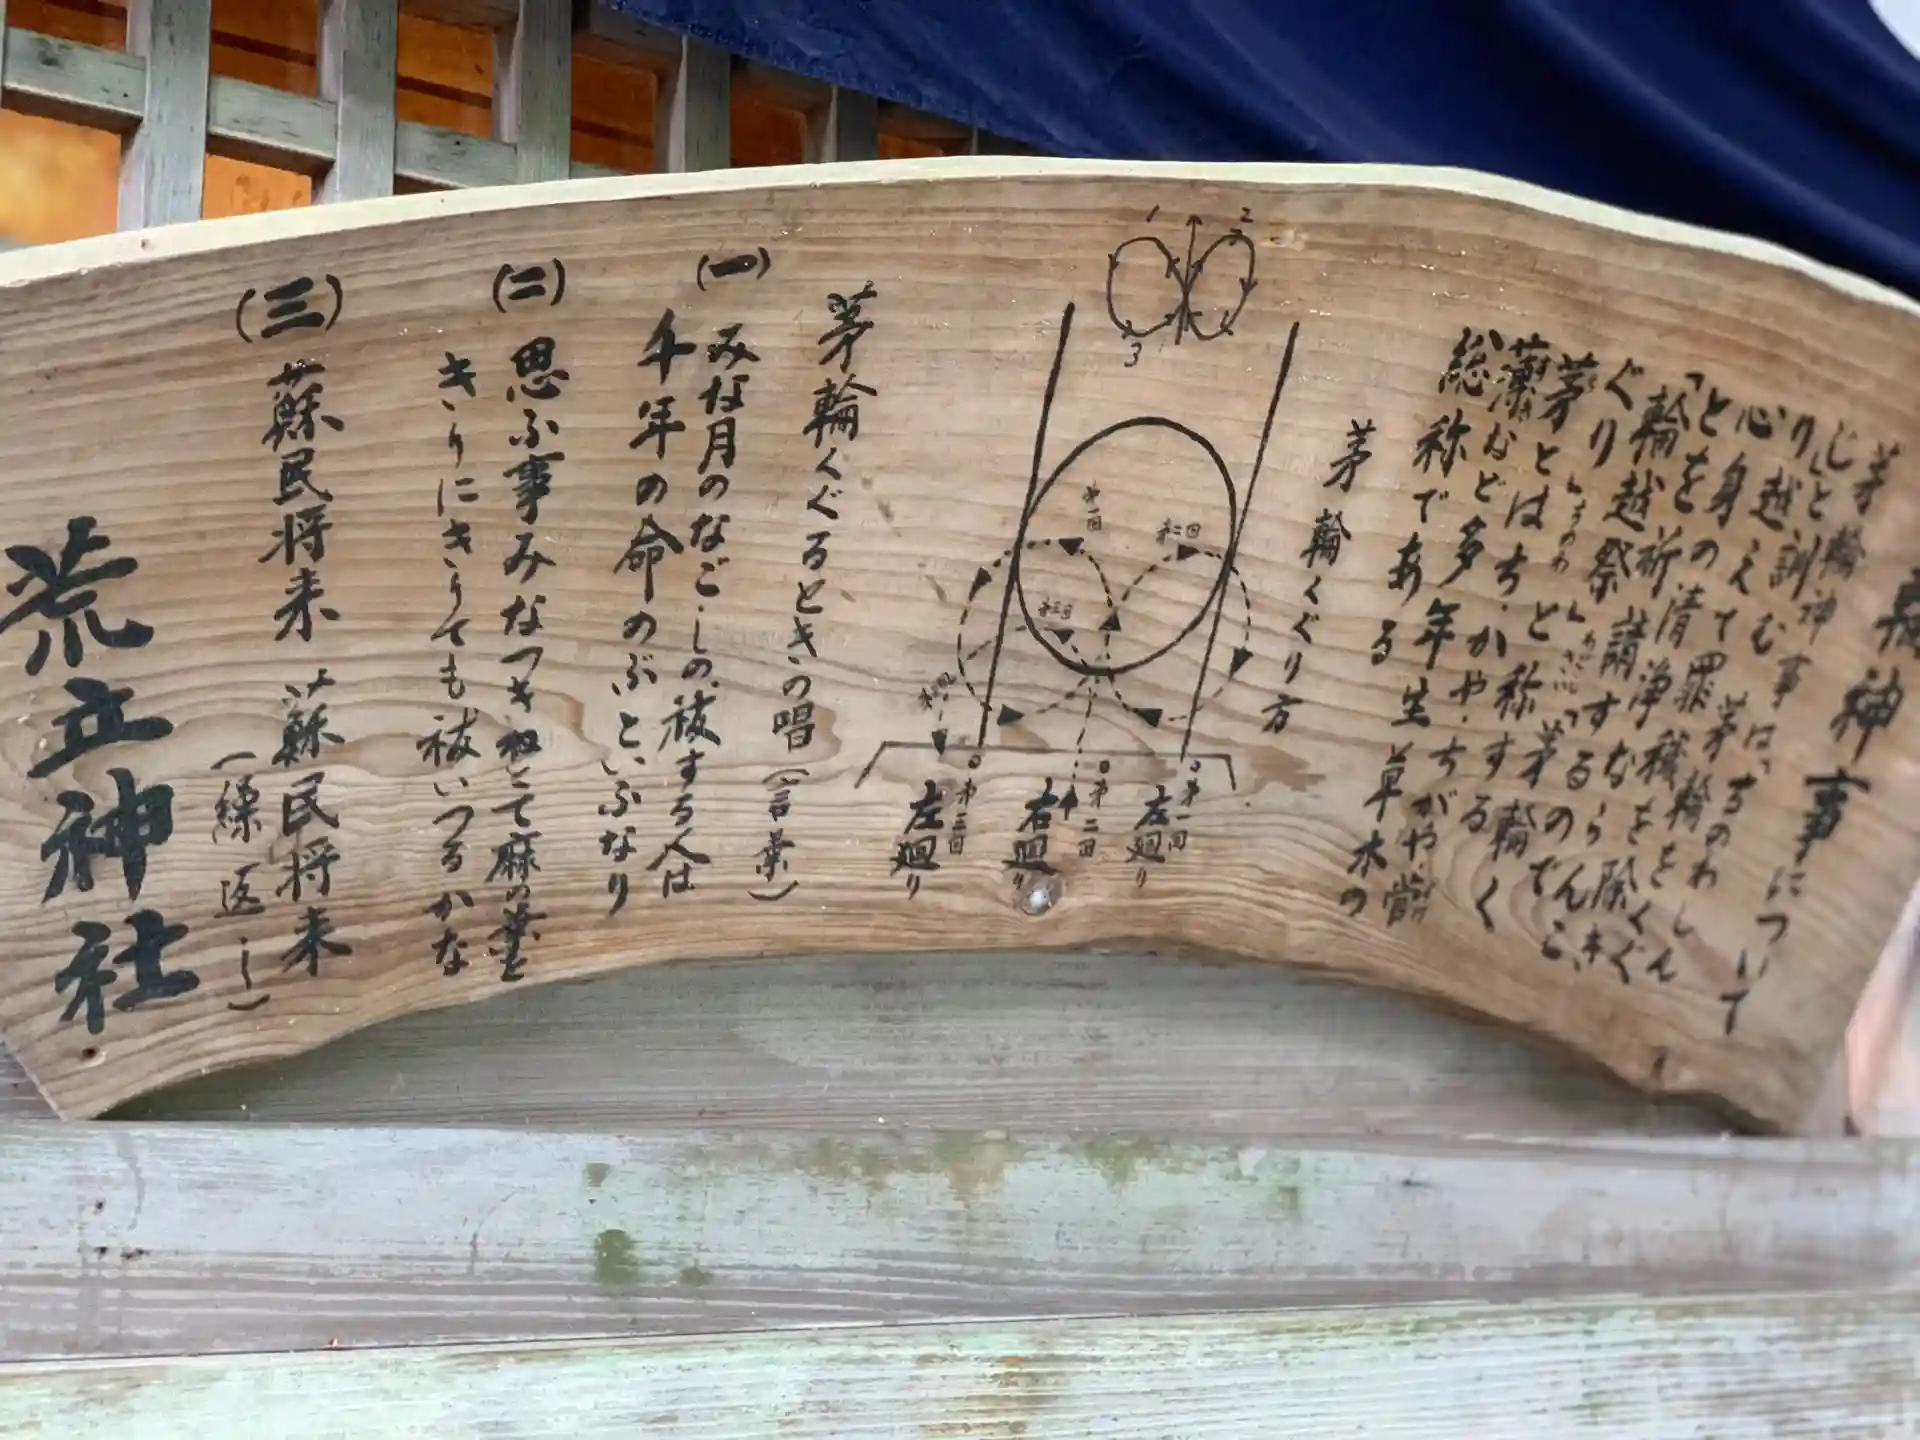 輪神事について
茅輪神事は「ちのわしん
じ」と訓む 茅輪をくぐ
り越えて罪穢を除き
心身の清浄を
とを祈請するのでんこ
「輪越祭
ぐり
茅とはち・かやと称する
薄など多年生
総称である
草木の
茅輪くぐり方
1
2
3
第一回
第二回
第三回
第一回
左廻り
第二回
右廻り
第三回
左廻り
茅輪くぐるときの唱(言葉)
(一)
みな月のなごしの祓する人は
千年の命のぶといふなり
(二)
思ふ事みなつきねとて麻の葉を
きりにきりても祓いつるかな
(三)
蘇民将来 蘇民将来
(繰返し)
荒立神社